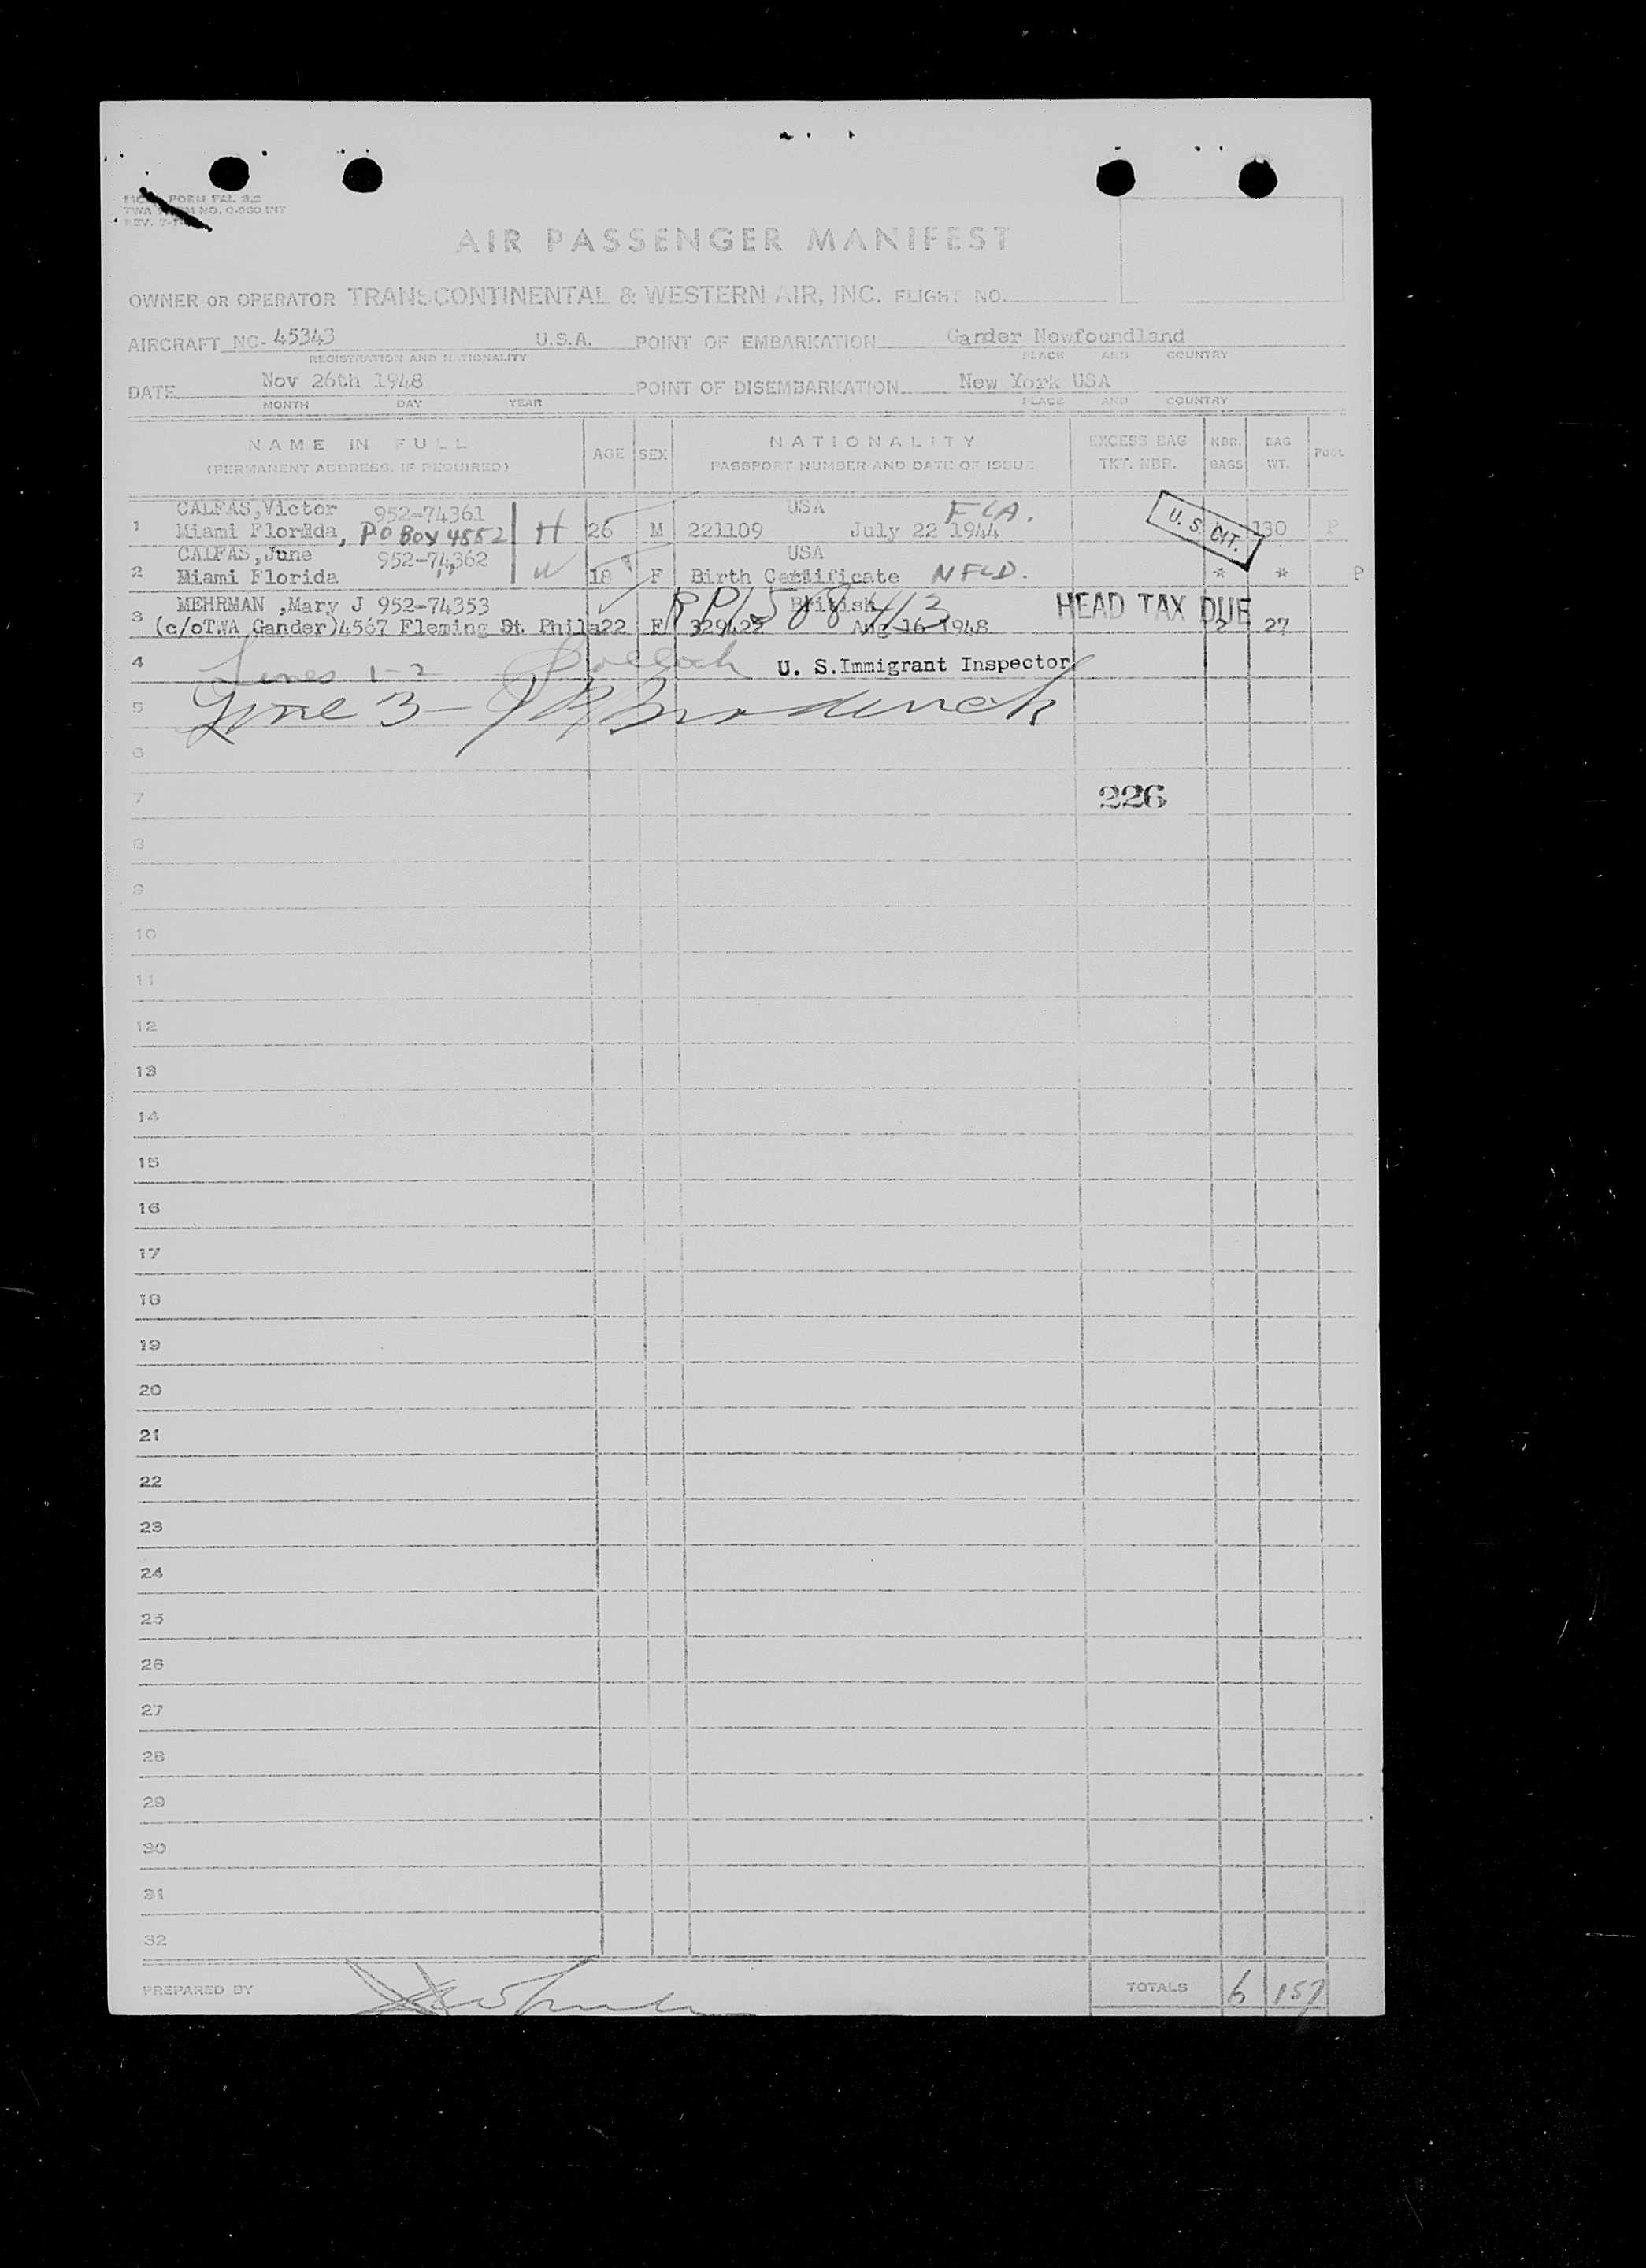 FORM FAL 3.2
TWA FORM NO. O-200 INT
REV. 7-
AIR PASSENGER MANIFEST
OWNER OR OPERATOR TRANSCONTINENTAL & WESTERN AIR, INC. FLIGHT NO.
AIRCRAFT NC- 45343 U.S.A. POINT OF EMBARKATION Gander Newfoundland
REGISTRATION AND NATIONALITY PLACE AND COUNTRY
DATE Nov 26th 1948 POINT OF DISEMBARKATION New York USA
MONTH DAY YEAR PLACE AND COUNTRY
NAME IN FULL AGE SEX NATIONALITY EXCESS BAG NBR. BAG POOL
(PERMANENT ADDRESS, IF REQUIRED) PASSPORT NUMBER AND DATE OF ISSUE TKT. NBR. BAGS WT.
CALFAS,Victor 952-74361 USA FLA.
1 Miami Florida, PO Box 4552 H 26 M 221109 July 22 1944 U. S. CIT. 130 P
CALFAS,June 952-74362 USA
2 Miami Florida W 18 F Birth Certificate NFLD. * * P
MEHRMAN ,Mary J 952-74353 British HEAD TAX DUE
3 (c/oTWA Gander)4567 Fleming St. Phila 22 F 329422 Aug 16 1948 2 27
4 Lines 1-2 U. S. Immigrant Inspector
5 Line 3-
6
7 226
8
9
10
11
12
13
14
15
16
17
18
19
20
21
22
23
24
25
26
27
28
29
30
31
32
PREPARED BY TOTALS 6 157